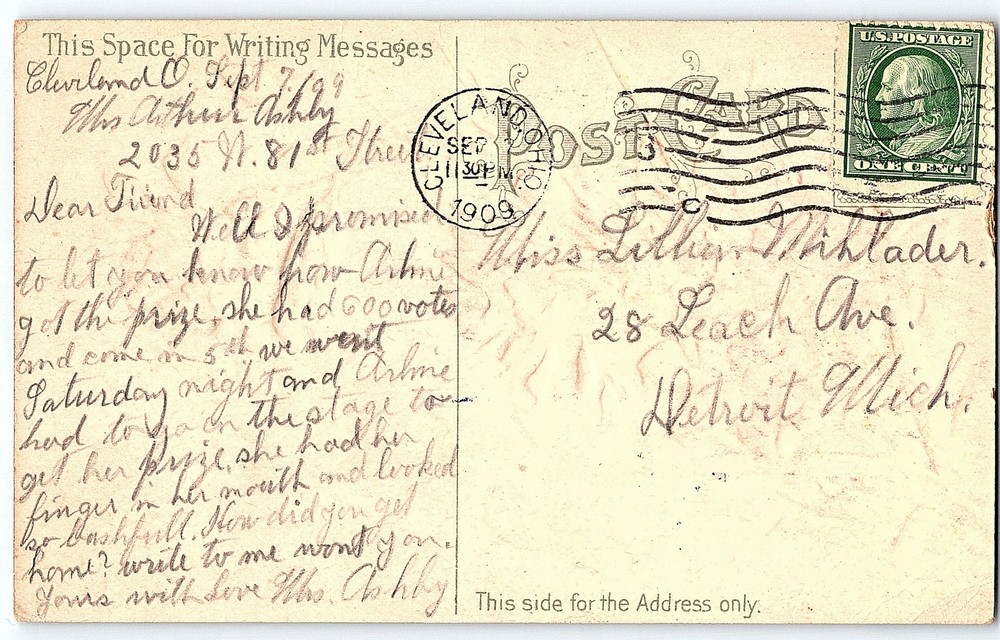 This Space For Writing Messages
Cleveland O. Sept 7/09
Mrs Arthur Ashby
2035 W. 81st Street
Dear Friend
Well I promised
to let you know how Arline
got the prize, she had 600 votes
and come in 5th we went
Saturday night and Arline
had to go on the stage to
get her prize, she had her
finger in her mouth and looked
so bashfull. How did you get
home? write to me wont you.
Yours with Love Mrs. Ashby
POST CARD
CLEVELAND, OHIO
SEP
1130PM
1909
3
C
U.S. POSTAGE
ONE CENT
Miss Lillian Mihlader.
28 Leach Ave.
Detroit Mich.
This side for the Address only.